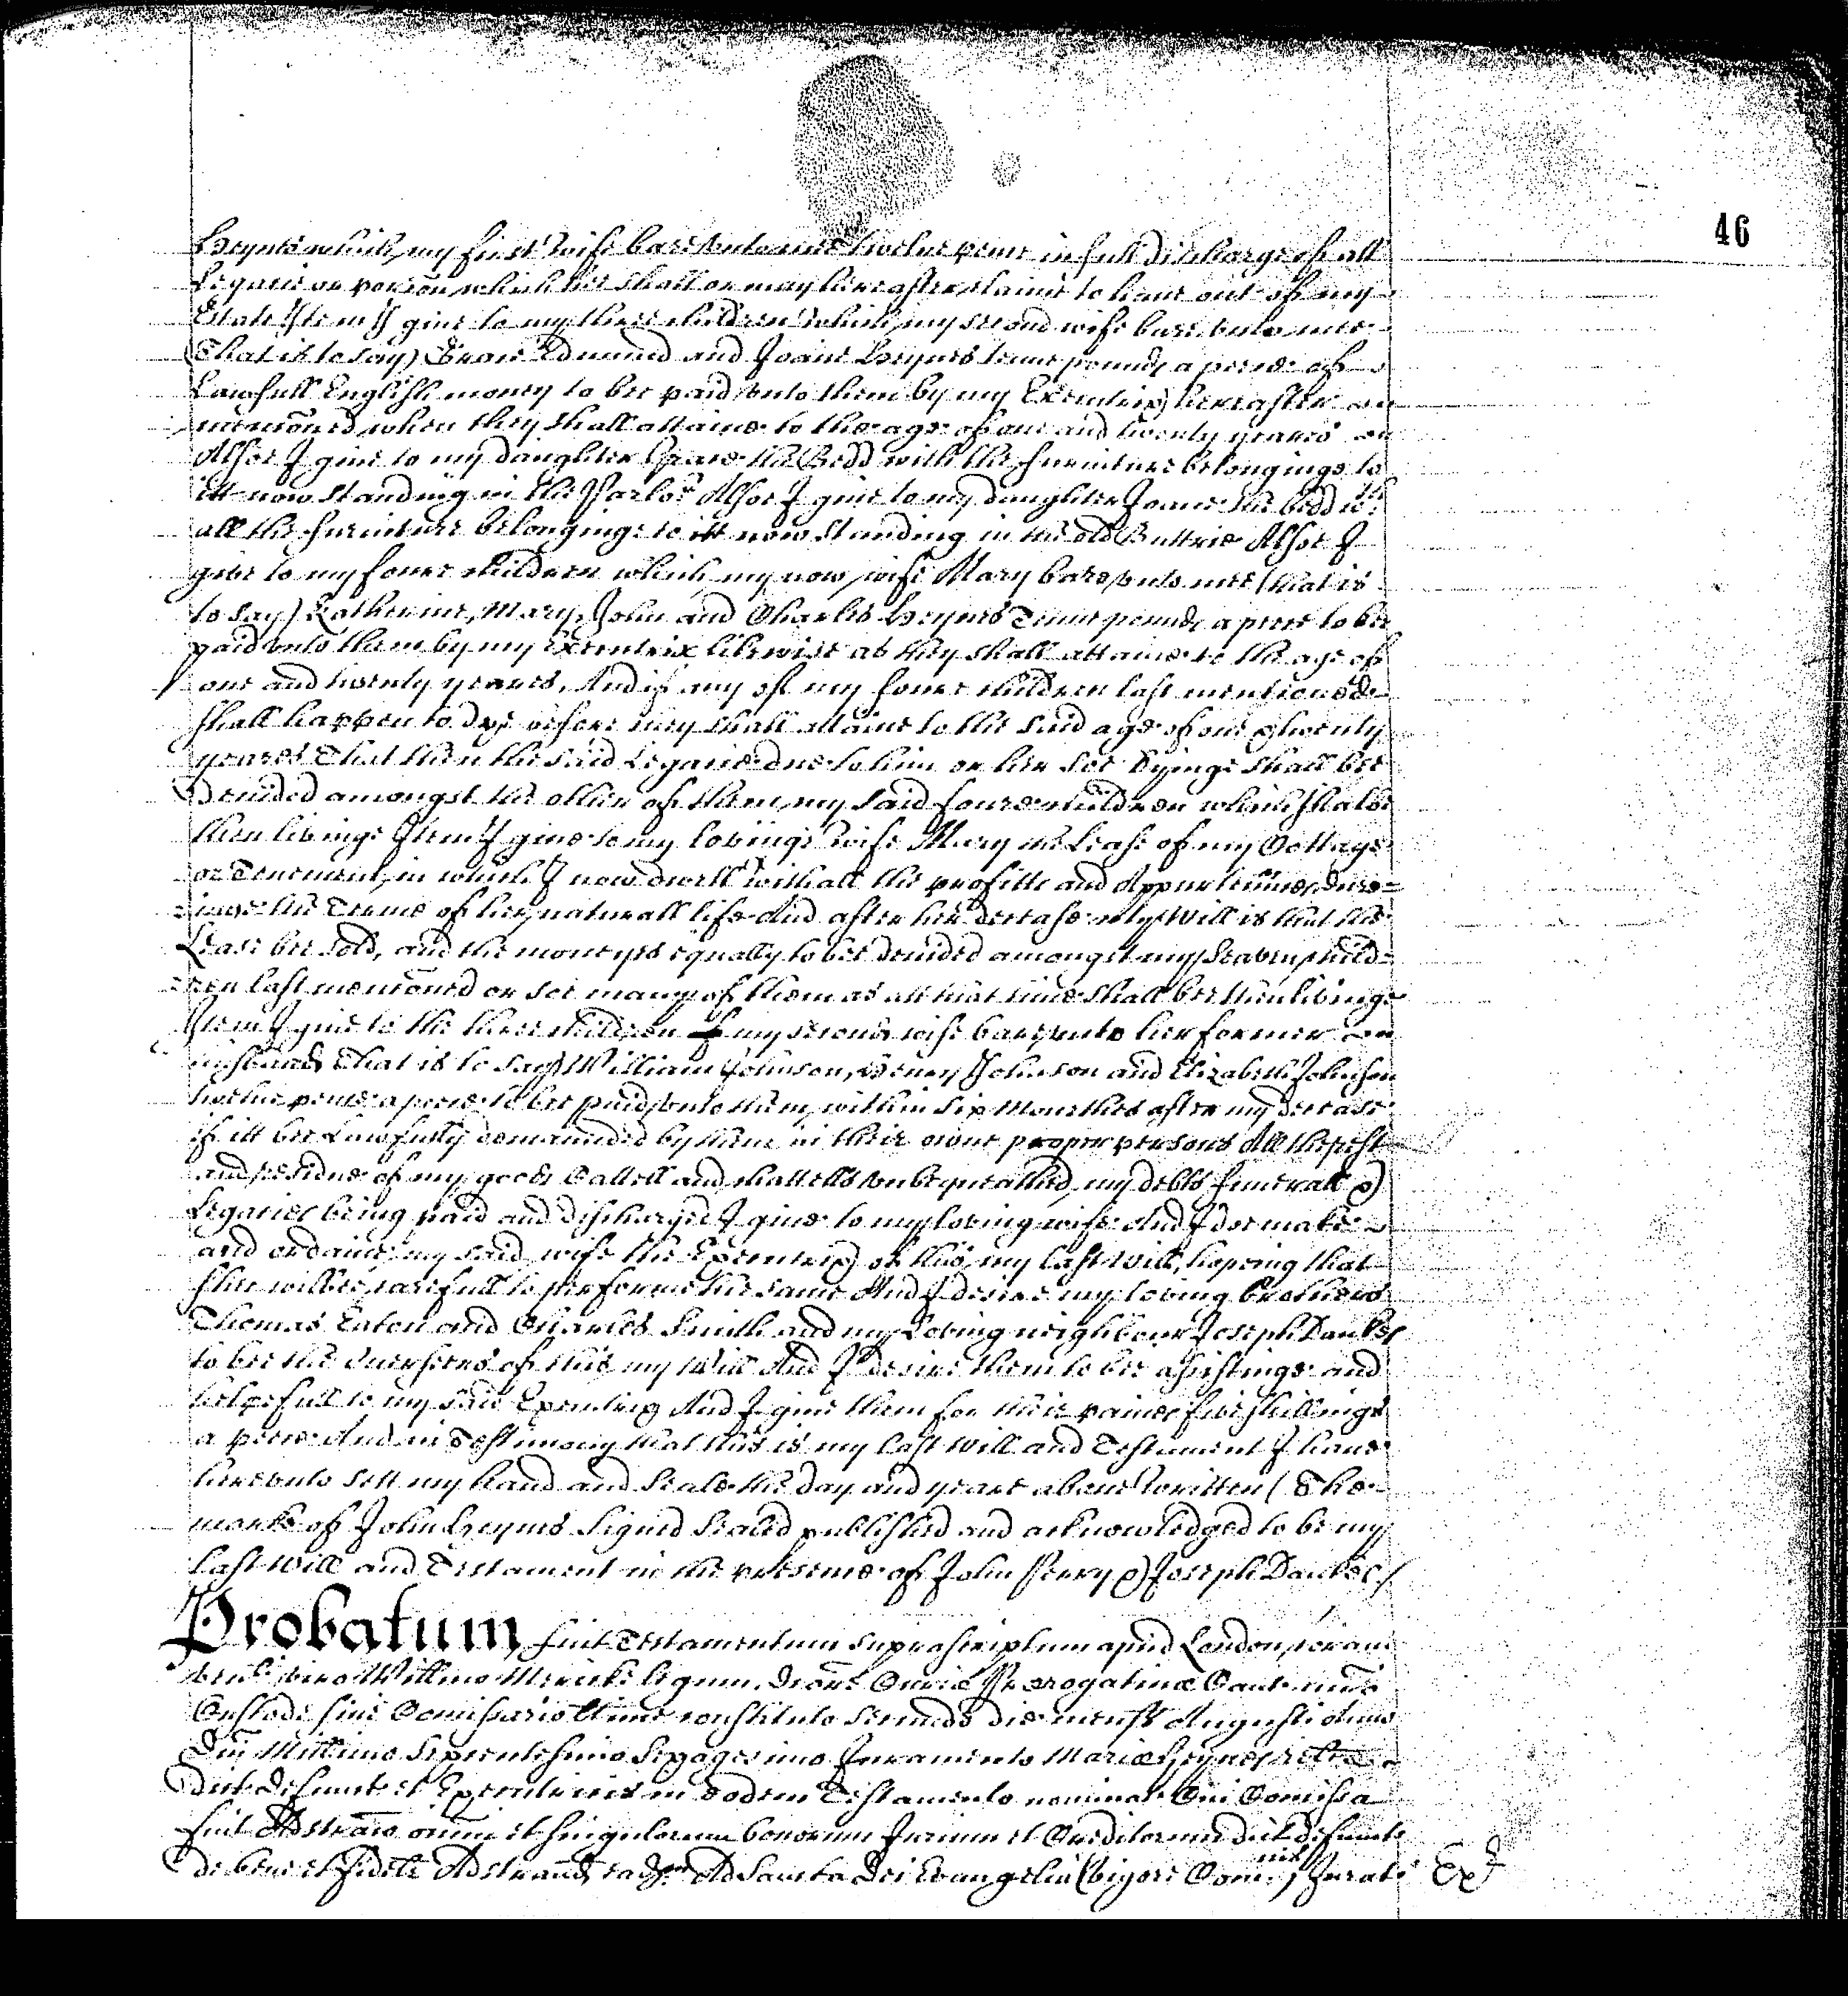 46
Heynes which my first wife bare unto mee twelve pence in full discharge of all
Legacie or porcōn which hee shall or may hereafter claime to have out of my
Estate Item I give to my three children which my second wife bare unto mee
(That is to say) Grace Edmund and Joane Heynes tenne pounds a peece of
Lawfull English money to bee paid unto them by my Executrix hereafter
mencōned when they shall attaine to the age of one and twenty yeares
Alsoe I give to my daughter Grace the Bedd with the furniture belonginge to
itt now standing in the Parlor Alsoe I give to my daughter Joane the bedd wth
all the furniture belonginge to itt now standing in the old Buttrie Alsoe I
give to my foure children which my now wife Mary bare unto mee (that is
to say) Katherine, Mary, John and Charles Heynes Tenne pounds a peece to bee
paid unto them by my Executrix likewise as they shall attaine to the age of
one and twenty yeares, And if any of my foure children last mentioned
shall happen to dye before they shall attaine to the said age of one & twenty
yeares That then the said Legacie due to him or her soe dyinge shall bee
Devided amongst the other of them my said foure children which shalbe
then livinge Item I give to my lovinge wife Mary the Lease of my Cottage
or Tenement, in which I now dwell withall the profitts and Appurtennces dure=
=inge the Terme of her naturall life And after her decease my Will is that the
Lease bee sold, and the moneyes equally to bee devided amongst my seaven child=
=ren last mencōned or soe many of them as att that time shall bee then livinge
Item I give to the three children my second wife bare unto her former
husband That is to say William Johnson, Henry Johnson and Elizabeth Johnson
twelve pence a peece to bee paid unto them within six monethes after my decease
if itt bee Lawfully demaunded by them in their owne proper persons All the rest
and residue of my goods Cattell and chattells unbequeathed, my debts funerall &
Legacies being paid and discharged I give to my loving wife And I doe make
and ordaine my said wife the Executrix of this my last will, hopeing that
shee willbee carefull to performe the same And I desire my loving brothers
Thomas Eaton and Charles Smith and my Loving neighbour Joseph Dankes
to bee the overseers of this my will And I desire them to bee assistinge and
helpefull to my said Executrix And I give them for their paines five shillings
a peece And in Testimony that this is my last will and Testament I have
hereunto sett my hand and seale the day and yeare above written / The
marke of John Heynes Signed Sealed published and acknowledged to be my
last will and Testament in the presence of John Perry & Joseph Dankes /
Probatum fuit Testamentum suprascriptum apud London, coram
venli viro Willimo Mericke legum dcore Curiæ Prerogativæ Cant
Custode sive Comissario ltime constituto secundo die mensis Augusti Anno
Dni Millimo Sexcentesimo Sexagesimo Juramento Mariæ Heynes relcæ
dict defuncti et Executricis in eodem Testamento nominat Cui Comissa
fuit Adstracō oniu et singulorum bonorum Jurium et Creditorum dict defuncti
de bene et fideli Adstrand ead Ad Sancta Dei Evangelia vigore Comnis Jurat
Exr